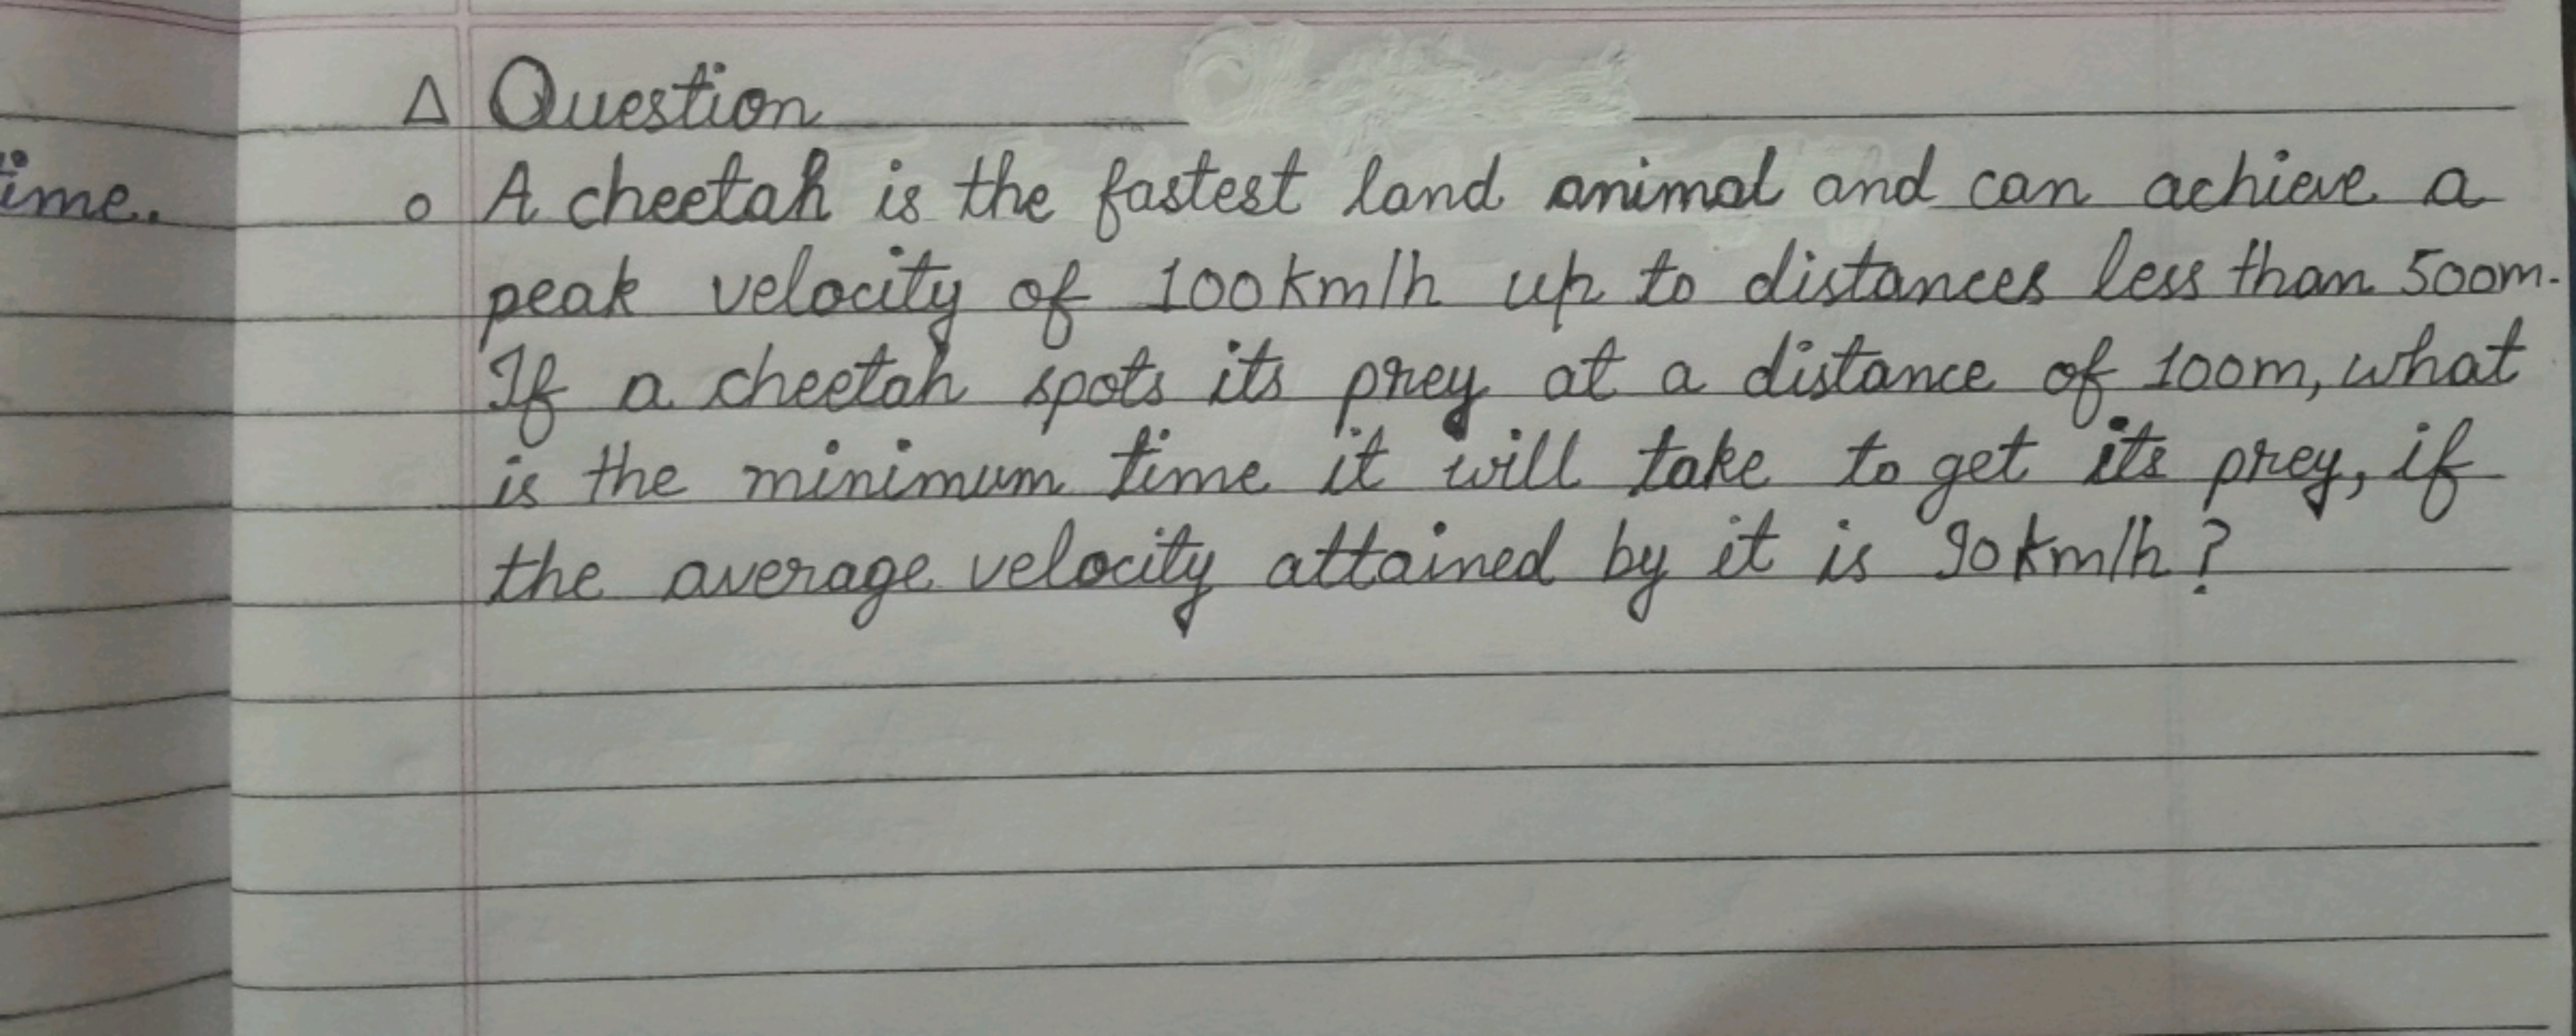 △ Question
ime.
○ A cheetah is the fastest land animal and can achieve a
peak velocity of 100km/h up to distances less than 500m.
If a cheetah spots its prey at a distance of 100m, what
is the minimum time it will take to get its prey, if
the average velocity attained by it is 90km/h?